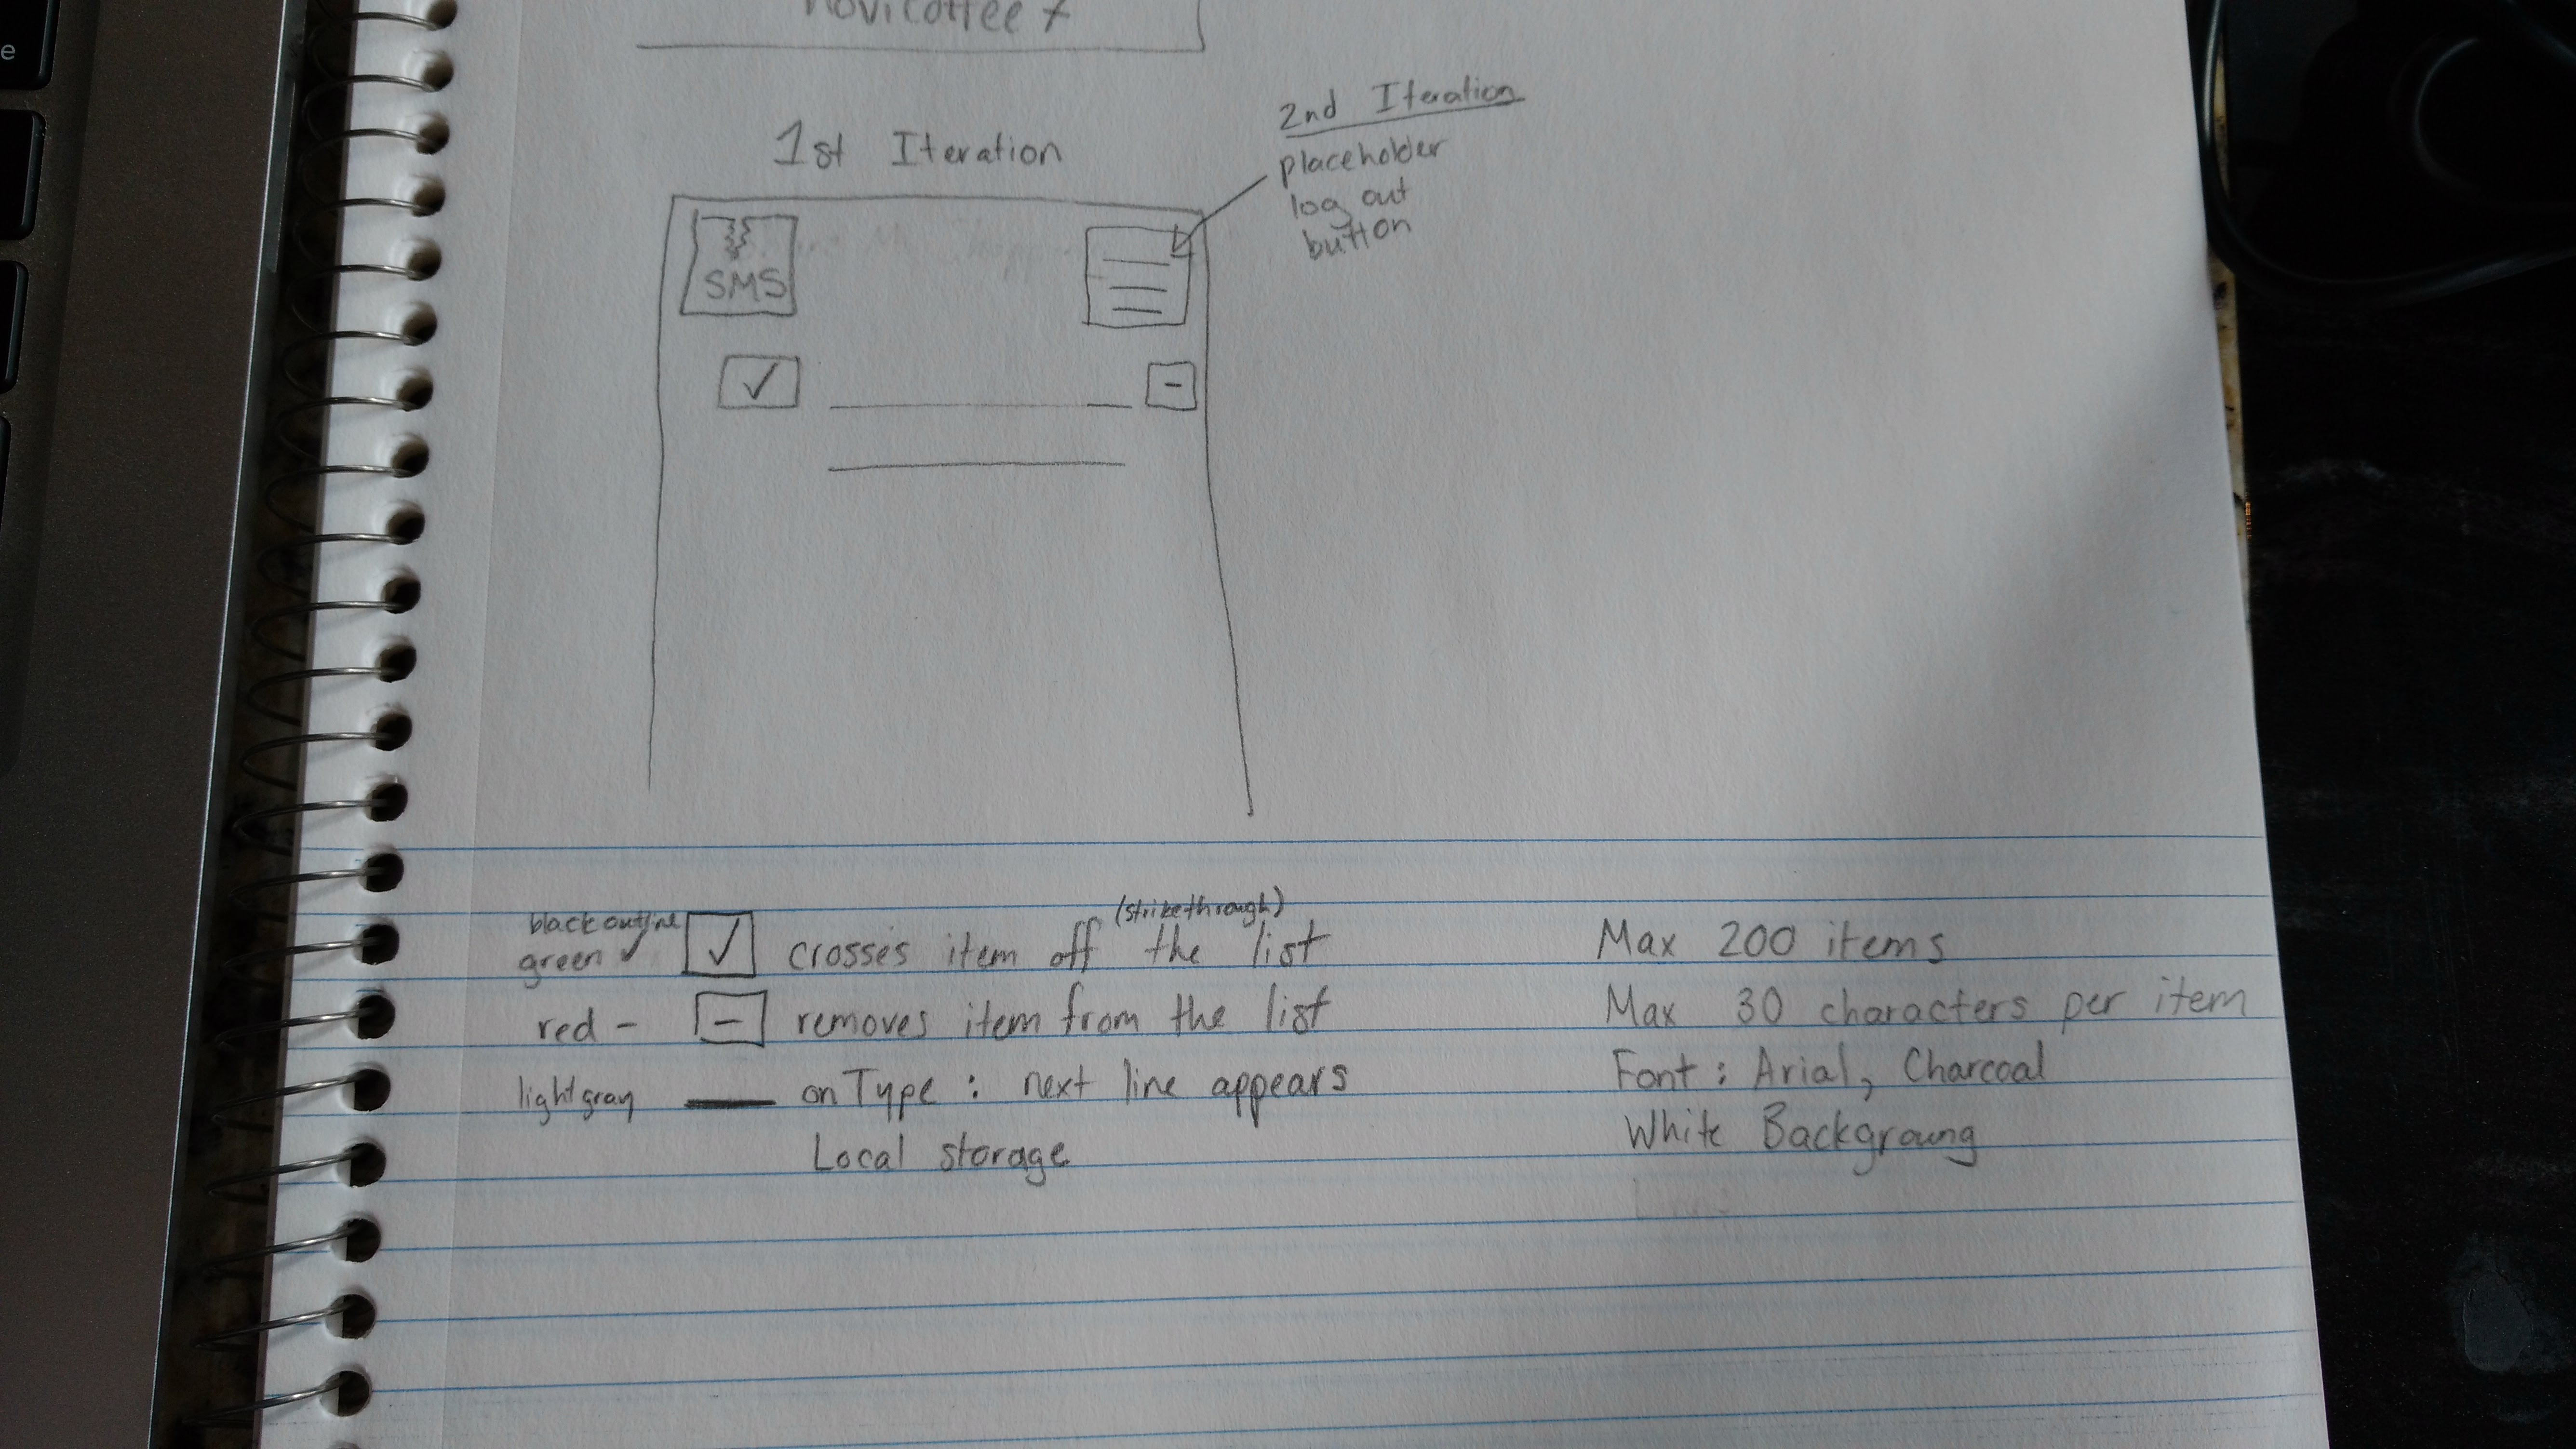 e
novicoffee +
1st Iteration
2nd Iteration
placeholder
log out
button
SMS
✓
-
black outline
green ✓
✓
crosses item off the list
(strikethrough)
red -
-
removes item from the list
light gray
onType: next line appears
Local storage
Max 200 items
Max 30 characters per item
Font: Arial, Charcoal
White Backgroung